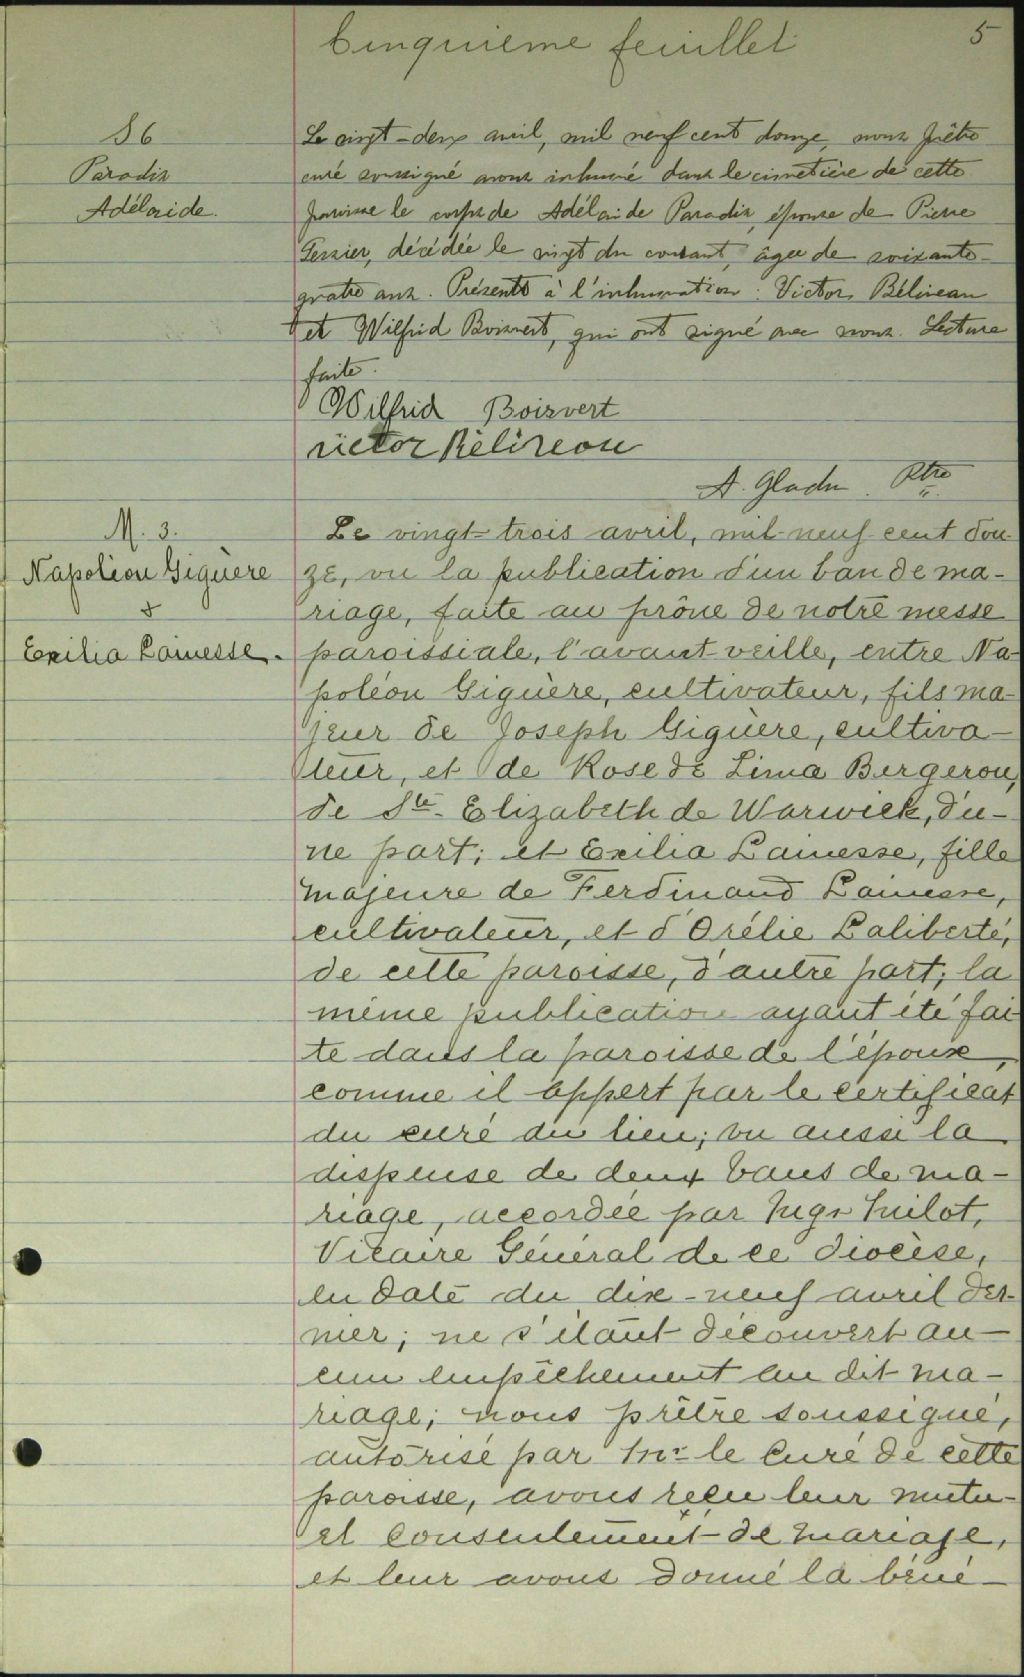 Cinquième feuillet 5
S 6
Paradis
Adélaide.
Le vingt-deux avril, mil neuf cent douze, nous prêtre
curé soussigné avons inhumé dans le cimetière de cette
paroisse le corps de Adélaide Paradis, épouse de Pierre
Tessier, décédée le vingt du courant, âgée de soixante-
quatre ans. Présents à l'inhumation: Victor Béliveau
et Wilfrid Boisvert, qui ont signé avec nous. Lecture
faite.
Wilfrid Boisvert
victor Béliveau
A. Gladu Ptre
M. 3.
Napoléon Giguère
&
Exilia Lainesse.
Le vingt-trois avril, mil-neuf-cent dou-
ze, vu la publication d'un ban de ma-
riage, faite au prône de notre messe
paroissiale, l'avant-veille, entre Na-
poléon Giguère, cultivateur, fils ma-
jeur de Joseph Giguère, cultiva-
teur, et de Rose de Lima Bergeron,
de Ste. Elizabeth de Warwick, d'u-
ne part; et Exilia Lainesse, fille
majeure de Ferdinand Lainesse,
cultivateur, et d'Orélie Laliberté,
de cette paroisse, d'autre part; la
même publication ayant été fai-
te dans la paroisse de l'époux,
comme il appert par le certificat
du curé du lieu; vu aussi la
dispense de deux bans de ma-
riage, accordée par Mgr Milot,
Vicaire Général de ce diocèse,
en date du dix-neuf avril der-
nier; ne s'étant découvert au-
cun empêchement au dit ma-
riage; nous prêtre soussigné,
autorisé par Mr le Curé de cette
paroisse, avons reçu leur mutu-
el consentement de mariage,
et leur avons donné la béné-